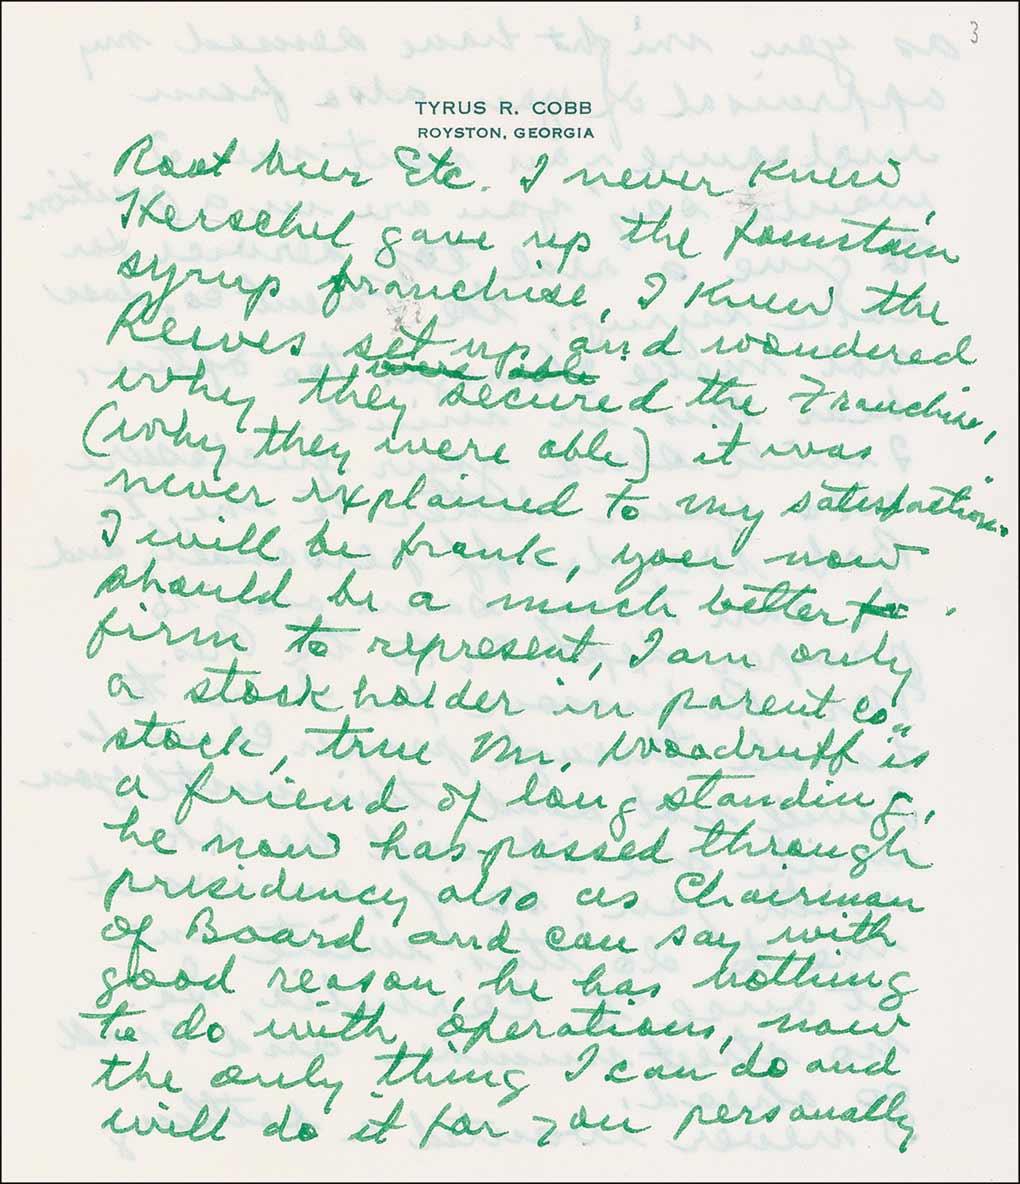 3
TYRUS R. COBB
ROYSTON, GEORGIA
Root beer Etc. I never knew
Herschel gave up the fountain
syrup franchise, I knew the
Reeves set up, and wondered
were able
why they secured the Franchise,
(why they were able) it was
never explained to my satisfaction.
I will be frank, you now
should be a much better
firm to represent, I am only
a stockholder in parent co"
stock, true Mr. Woodruff is
a friend of long standing,
he now has passed through
presidency also as Chairman
of Board and can say with
good reason, he has nothing
to do with, operations, now
the only thing I can do and
will do it for you personally